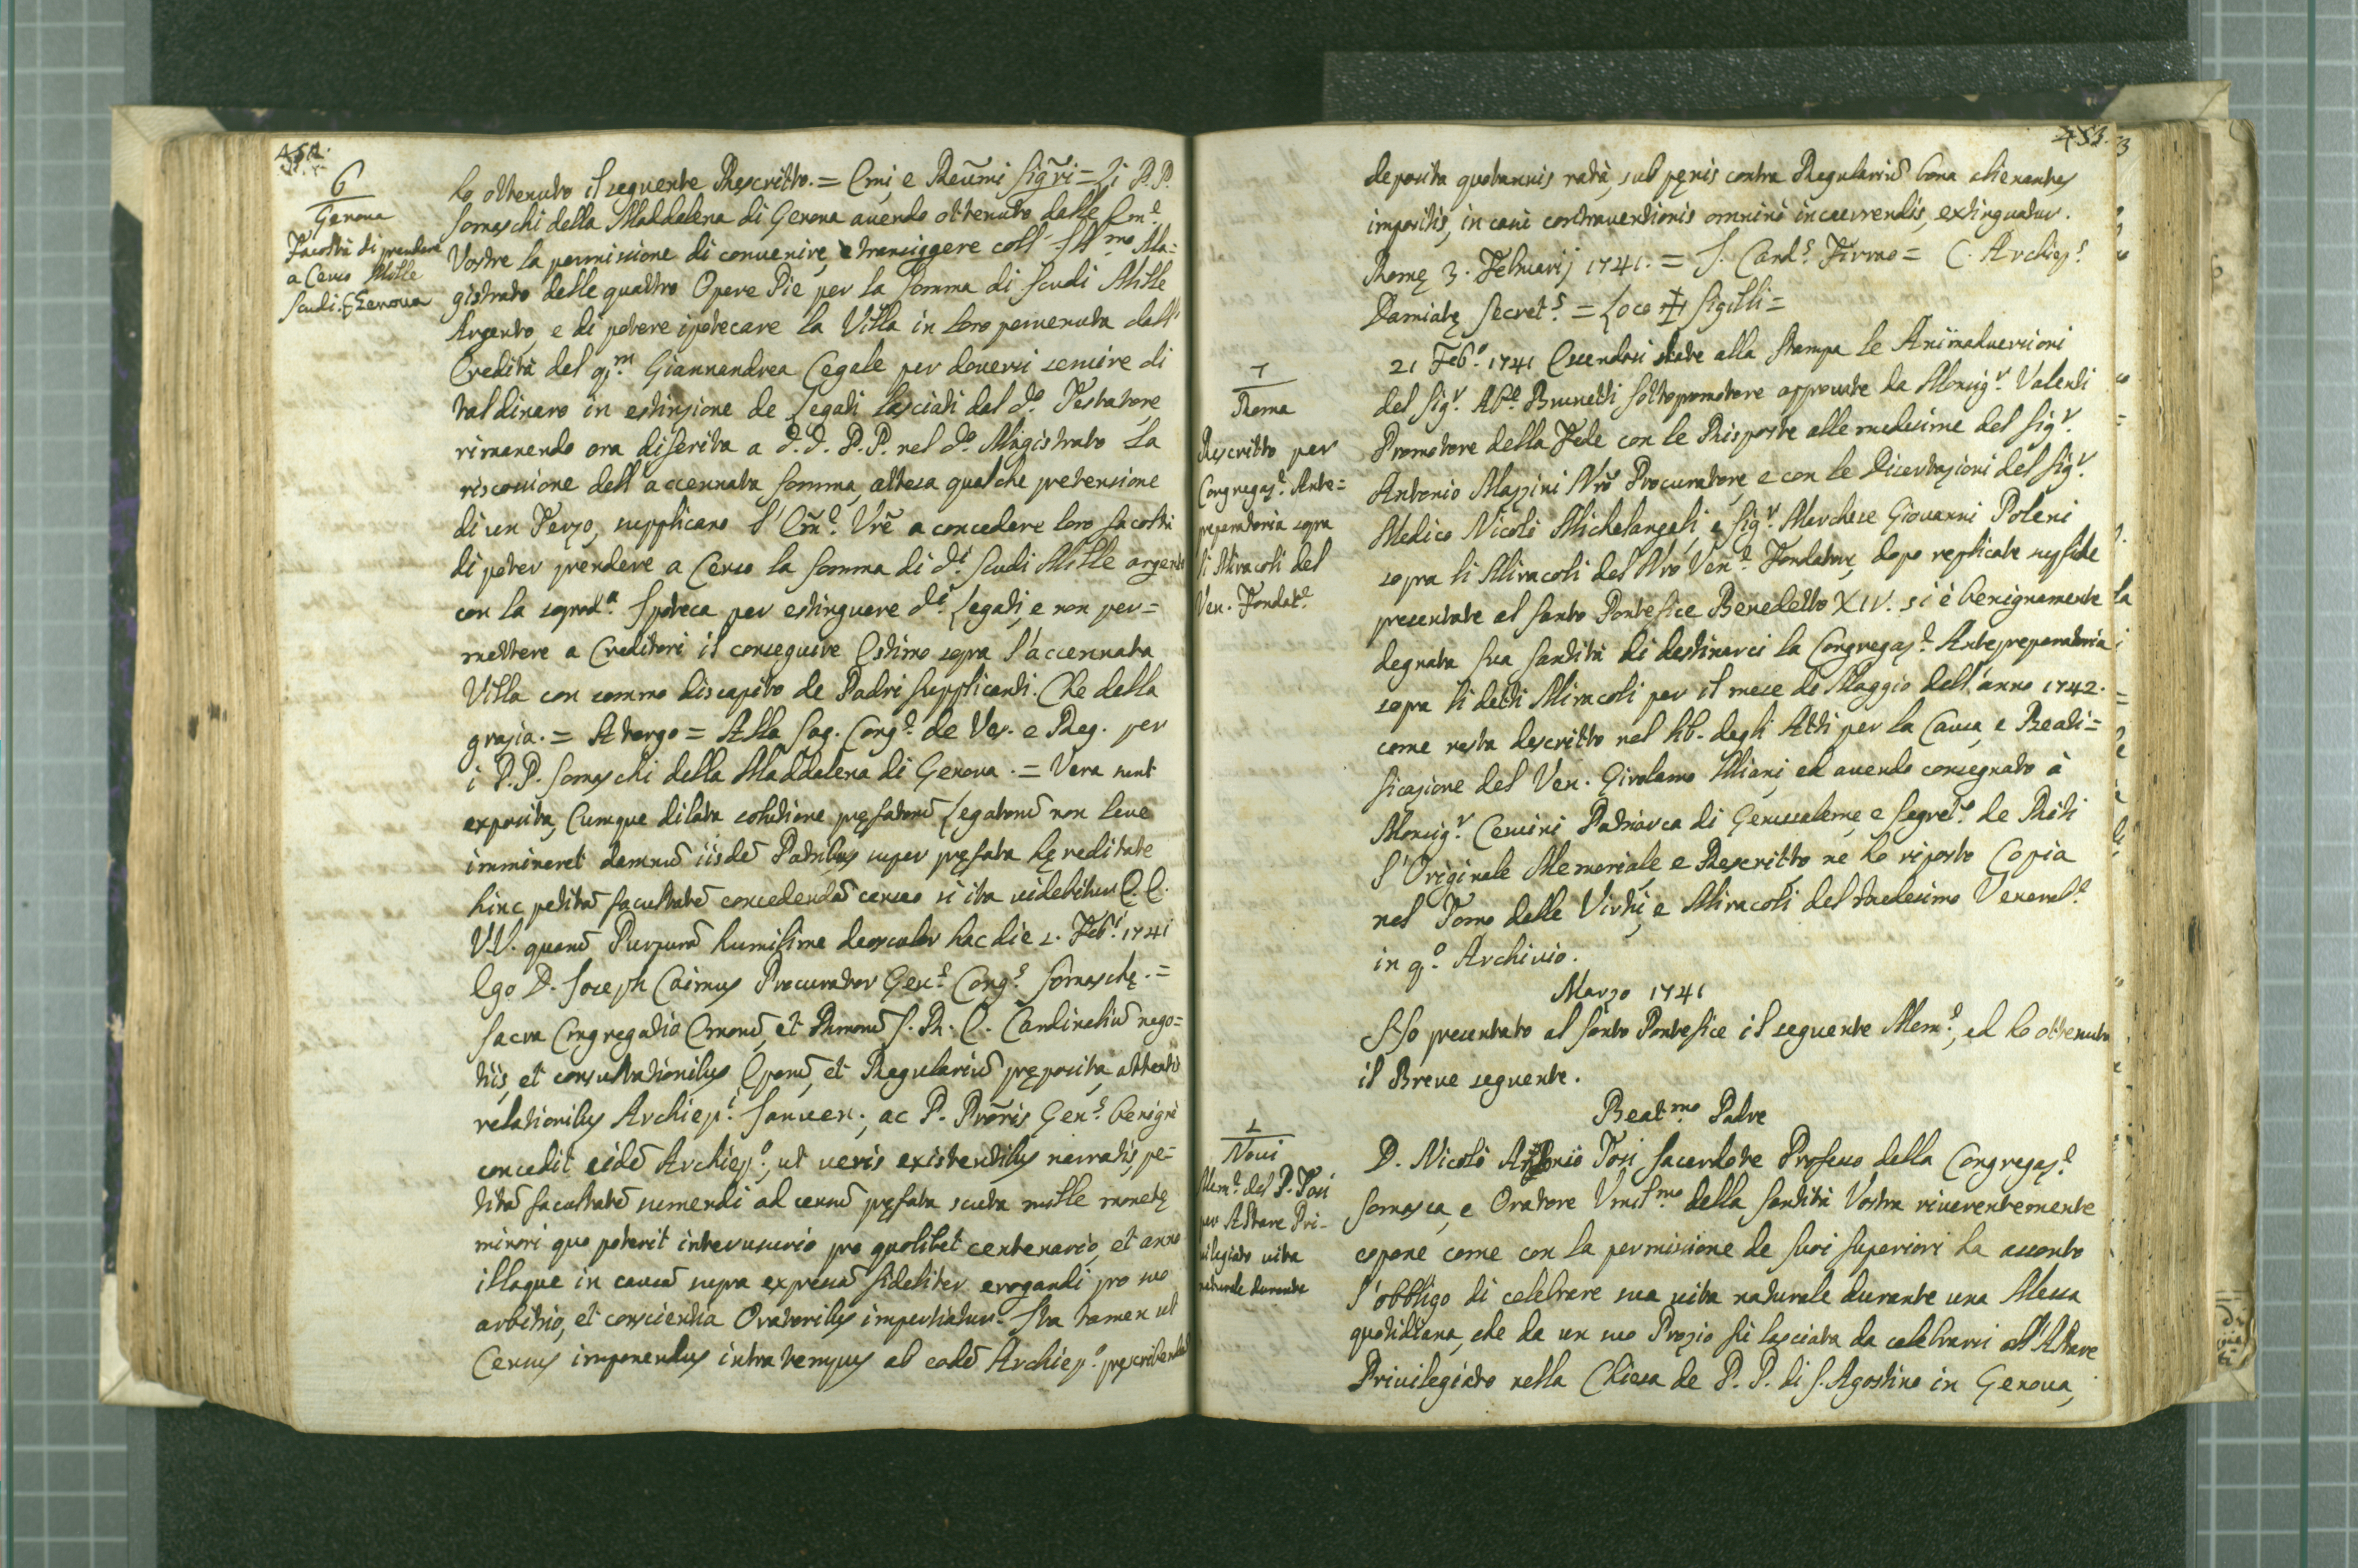 452.
6
Genova
Facoltà di prendere
a Censo Mille
Scudi. Genova
ho ottenuto il seguente Rescritto. = Emi, e Reumi Sigri = Li P.P.
Somaschi della Maddalena di Genova avendo ottenuto dalle Emze
Vostre la permissione di convenire, e transiggere coll' Illmo Ma=
gistrato delle quattro Opere Pie per la somma di Scudi Mille
Argento, e di potere ipotecare la Villa in loro pervenuta dall'
Eredità del qm Giannandrea Cegale per doversi servire di
tal dinaro in estinzione de Legati lasciati dal do. Testatore,
rimanendo ora diferita a d.d. P.P. nel do. Magistrato la
riscossione dell'accennata somma, attesa qualche pretensione
di un Terzo, supplicano l'Emze Vre a concedere loro facoltà
di poter prendere a Censo la somma di di Scudi Mille argento
con la soprada. Ipoteca per estinguere di. Legati, e non per=
mettere a Creditori il conseguire Estimo sopra l'accennata
Villa con sommo discapito de Padri Supplicanti. Che della
grazia. = A tergo = Alla Sag. Congne de Ves. e Reg. per
i P.P. Somaschi della Maddalena di Genova. = Vera sunt
exposita, Cumque dilata solutione pręfatorũ Legatorũ non leve
immineret damnũ iisdẽ Patribus super pręfata hęreditate
hinc petitã facultatẽ concedendã censeo si ita videbitur E.E.
V.V. quarũ Purpurã humilime deosculor hac die 2. Febi. 1741
Ego D. Joseph Caimus Procurator Genlis Congis Somaschę. =
Sacra Congregatio Emorũ, et Rmorũ S. R. E. Cardinaliũ nego=
tiis, et consultationibus Eporũ, et Regulariũ pręposita, attentis
relationibus Archiepi. Januen., ac P. Proris Genlis benignè
concedit eidẽ Archiepo., ut veris existentibus narratis, pe=
titã facultatẽ sumendi ad censũ pręfata scuta mille monetę
minori quo poterit interusurio pro quolibet centenario, et anno
illaque in causã supra expressã fideliter erogandi pro suo
arbitrio, et conscientia Oratoribus impertiatur. Ita tamen ut
Census imponendus intra tempus ab eodẽ Archiepo. pręscribendũ
453.
deposita quotannis ratà, sub pęnis contra Regulariũ bona alienantes
impositis, in casu contraventionis omnino incurrendis, extinguatur.
Romę 3. Februarij 1741. = J. Cards. Firmo = C. Archieps.
Damiatę Secrets. = Loco ✠ Sigilli =
7
Roma
Rescritto per
Congregazne Ante=
preparatoria sopra
li Miracoli del
Ven. Fondatre
21 Febo. 1741 Essendosi date alla stampa le Animadversioni
del Sigr. Abe. Brunetti Sottopromotore approvate da Monsigr. Valenti
Promotore della Fede con le Risposte alle medesime del Sigr.
Antonio Mazzini Nro Procuratore, e con le Dicertazioni del Sigr.
Medico Nicolò Michelangeli, e Sigr. Marchese Giovanni Poleni
sopra li Miracoli del Nro Vene. Fondatore, dopo replicate suppliche
presentate al Santo Pontefice Benedetto XIV. si è benignamente
degnata Sua Santità di destinarci la Congregazne Antepreparatoria
sopra li detti Miracoli per il mese di Maggio dell'anno 1742.
come resta descritto nel lib. degli Atti per la Causa, e Beati=
ficazione del Ven. Girolamo Miani, ed avendo consegnato à
Monsigr. Cervini Patriarca di Gerusaleme, e Segreto. de Riti
l'Originale Memoriale, e Rescritto, ne ho riposto Copia
nel Tomo delle Virtù, e Miracoli del medesimo Venerabe
in qo. Archivio.
Marzo 1741
Ho presentato al Santo Pontefice il seguente Meme, ed ho ottenuto
il Breve seguente.
Beatmo Padre
1
Novi
Meme del P. Tosi
per Altare Pri-
vilegiato vita
naturale durante
D. Nicolò Antonio Tosi Sacerdote Professo della Congregazne
Somasca, e Oratore Umilmo della Santità Vostra riverentemente
espone come con la permissione de suoi Superiori ha assonto
l'obbligo di celebrare sua vita naturale durante una Messa
quotidiana, che da un suo Prozio fù lasciata da celebrarsi all'Altare
Privilegiato nella Chiesa de P. P. di S. Agostino in Genova,